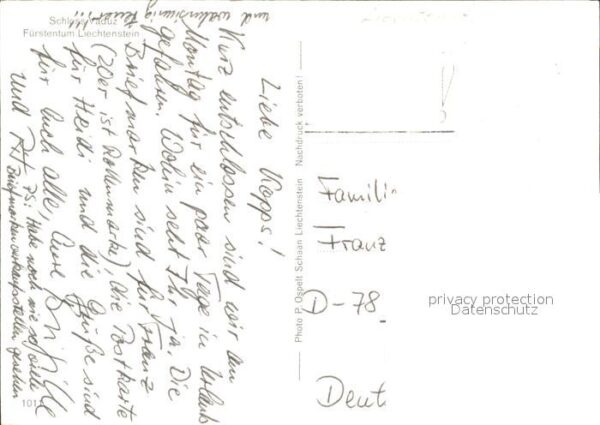 Schloss Vaduz
Fürstentum Liechtenstein
Liebe Kepps!
Kurz entschlossen sind wir am
Montag für ein paar Tage in Urlaub
gefahren. Wohin seht Ihr ja. Die
Briefmarken sind für Franz
(20er ist Rollenmarke), die Postkarte
für Heidi und die Grüße sind
für Euch alle, Eure
und
PS: Habe noch nie so viele
Briefmarkenverkaufsstellen gesehen
und wahnsinnig teuer!!!
101
Photo P. Ospelt Schaan Liechtenstein Nachdruck verboten!
Famili
Franz
D-78
Deut
privacy protection
Datenschutz